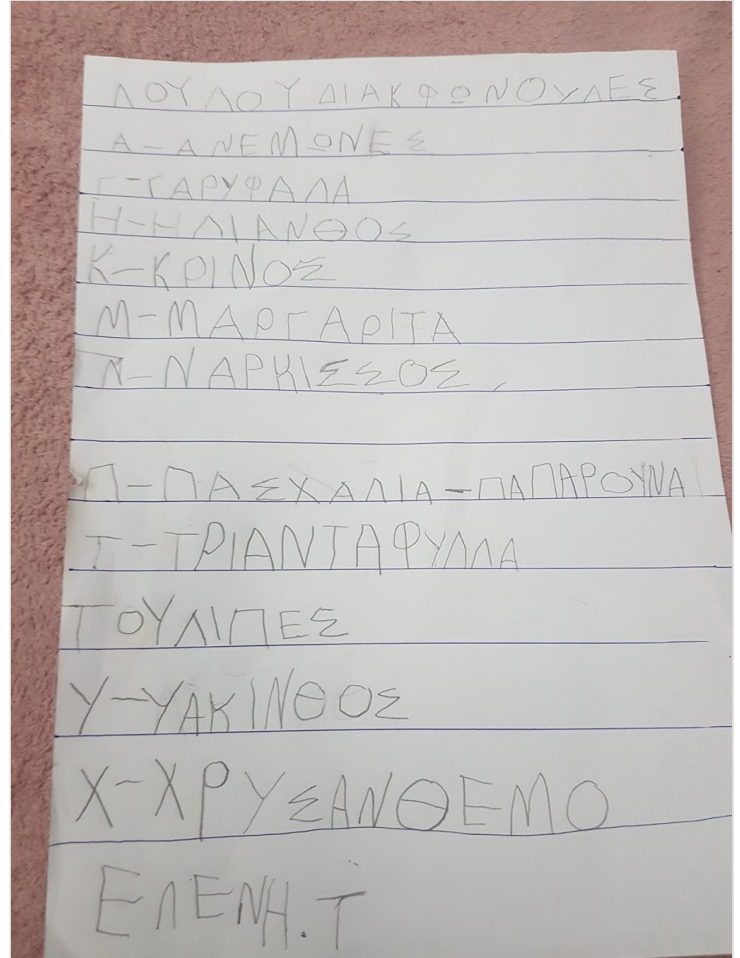 ΛΟΥΛΟΥΔΙΑΚΦΩΝΟΥΛΕΣ
Α-ΑΝΕΜΩΝΕΣ
Γ-ΓΑΡΥΦΑΛΑ
Η-ΗΛΙΑΝΘΟΣ
Κ-ΚΡΙΝΟΣ
Μ-ΜΑΡΓΑΡΙΤΑ
Ν-ΝΑΡΚΙΣΣΟΣ
Π-ΠΑΣΧΑΛΙΑ-ΠΑΠΑΡΟΥΝΑ
Τ-ΤΡΙΑΝΤΑΦΥΛΛΑ
ΤΟΥΛΙΠΕΣ
Υ-ΥΑΚΙΝΘΟΣ
Χ-ΧΡΥΣΑΝΘΕΜΟ
ΕΛΕΝΗ.Τ